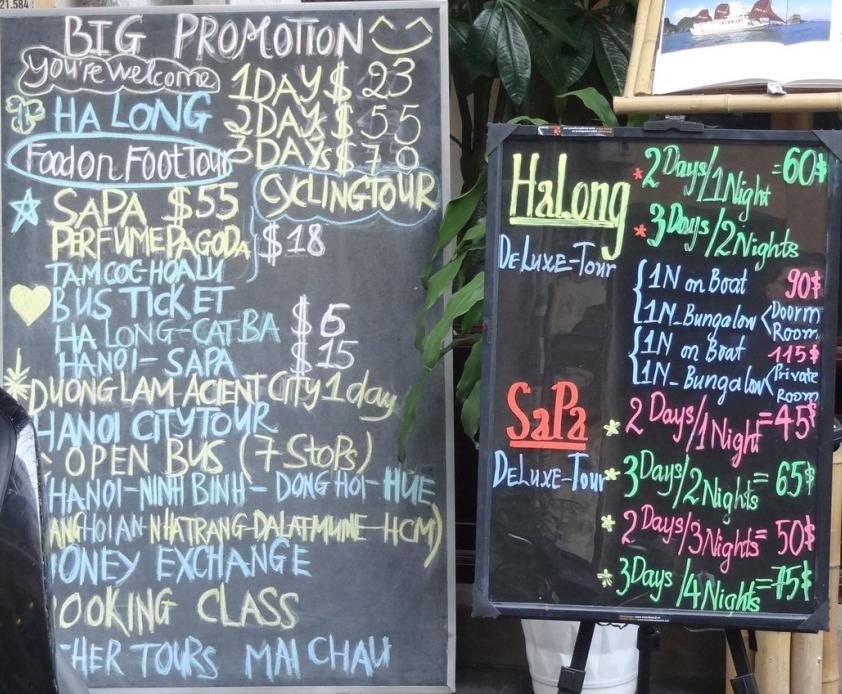 21.584:
BIG PROMOTION
You're welcome
1 DAY $ 23
HA LONG 2 DAYS $ 55
Food on Foot Tour 3 DAYS $ 70
CYCLING TOUR
SAPA $55
PERFUME PAGODA $18
TAMCOC-HOALU
BUS TICKET
HA LONG-CAT BA $ 6
HANOI - SAPA $ 15
DUONG LAM ACIENT CITY 1 day
HANOI CITY TOUR
OPEN BUS (7 StoPs)
HANOI-NINH BINH - DONG HOI - HUE
ANG HOI AN - NHATRANG-DALAT-MUINE-HCM)
ONEY EXCHANGE
OOKING CLASS
HER TOURS MAI CHAU
HaLong
* 2 Days/1 Night = 60$
* 3 Days/2 Nights
DeLuxe-Tour
1N on Boat 90$
1N_Bungalow < Doorm Room
1N on Boat 115$
1N_Bungalow < Private Room
SaPa
* 2 Days/1 Night = 45$
DeLuxe-Tour
* 3 Days/2 Nights = 65$
* 2 Days/3 Nights = 50$
* 3 Days/4 Nights = 75$